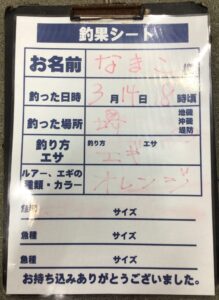 釣果シート
お名前 なまこ 様
釣った日時 3月14日 8時頃
釣った場所 堺 地磯 沖磯 堤防
釣り方 エサ 釣り方 エサ エギ
ルアー、エギの種類・カラー オレンジ
魚種 サイズ
魚種 サイズ
魚種 サイズ
お持ち込みありがとうございました。